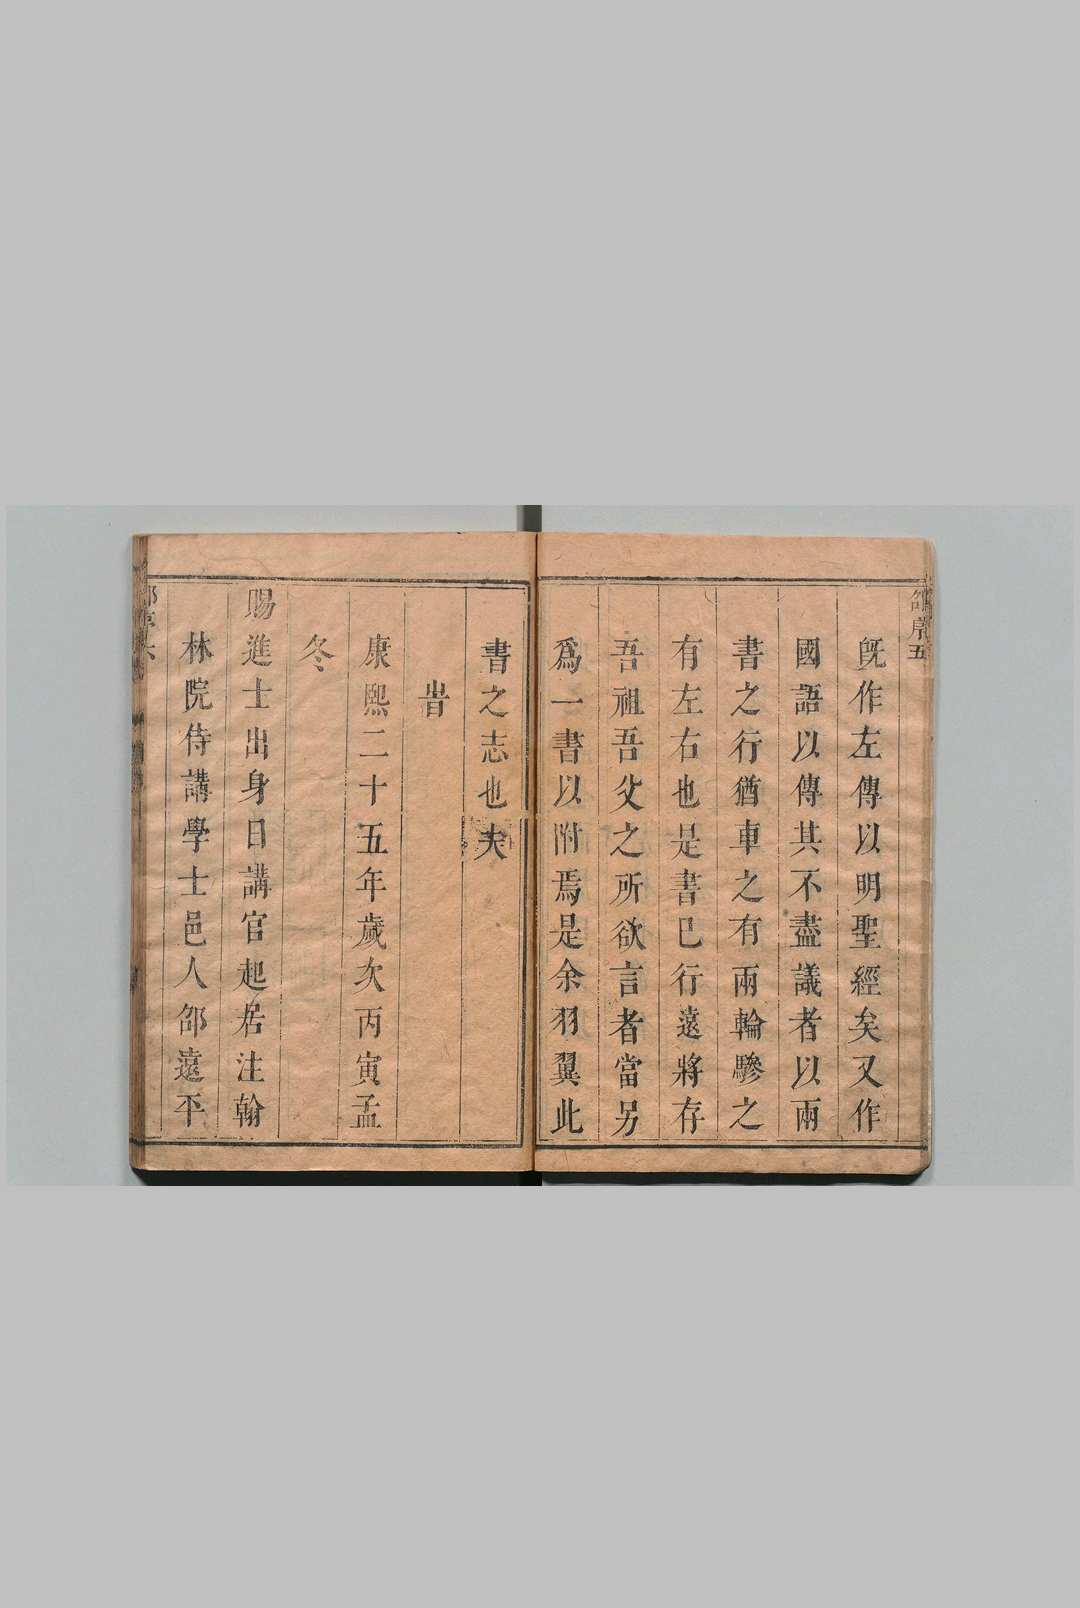 邵序五
旣作左傳以明聖經矣又作
國語以傳其不盡議者以兩
書之行猶車之有兩輪驂之
有左右也是書已行遠將存
吾祖吾父之所欲言者當另
爲一書以附焉是余羽翼此
書之志也夫
旹
康熙二十五年歲次丙寅孟
冬
賜進士出身日講官起居注翰
林院侍講學士邑人邵遠平
邵序六